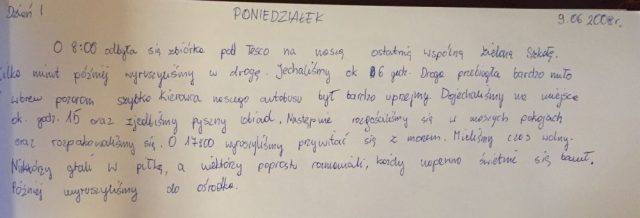 Dzień 1 PONIEDZIAŁEK 9.06 2008r.
O 8:00 odbyła się zbiórka pod Tesco na naszą ostatnią wspólną Zieloną Szkołę.
Kilka minut później wyruszyliśmy w drogę. Jechaliśmy ok 6 godz. Droga przebiegła bardzo miło
i wbrew pozorom szybko Kierowca naszego autobusu był bardzo uprzejmy. Dojechaliśmy na miejsce
ok. godz. 15 oraz zjedliśmy pyszny obiad. Następnie rozgościliśmy się w naszych pokojach
oraz rozpakowaliśmy się. O 17:00 wyruszyliśmy przywitać się z morzem. Mieliśmy czas wolny.
Niektórzy grali w piłkę, a niektórzy poprostu rozmawiali, każdy napewno świetnie się bawił.
Później wyruszyliśmy do ośrodka.